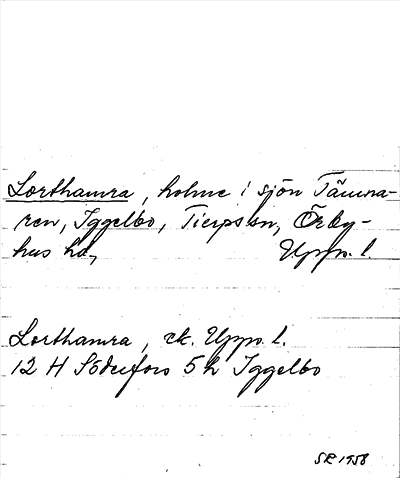 Lorthamra, holme i sjön Tämna-
ren, Iggelbo, Tierps sn, Örby-
hus hd, Upps. l.
Lorthamra, ek. Upps. l.
12 H Söderfors 5 h Iggelbo
SR 1958